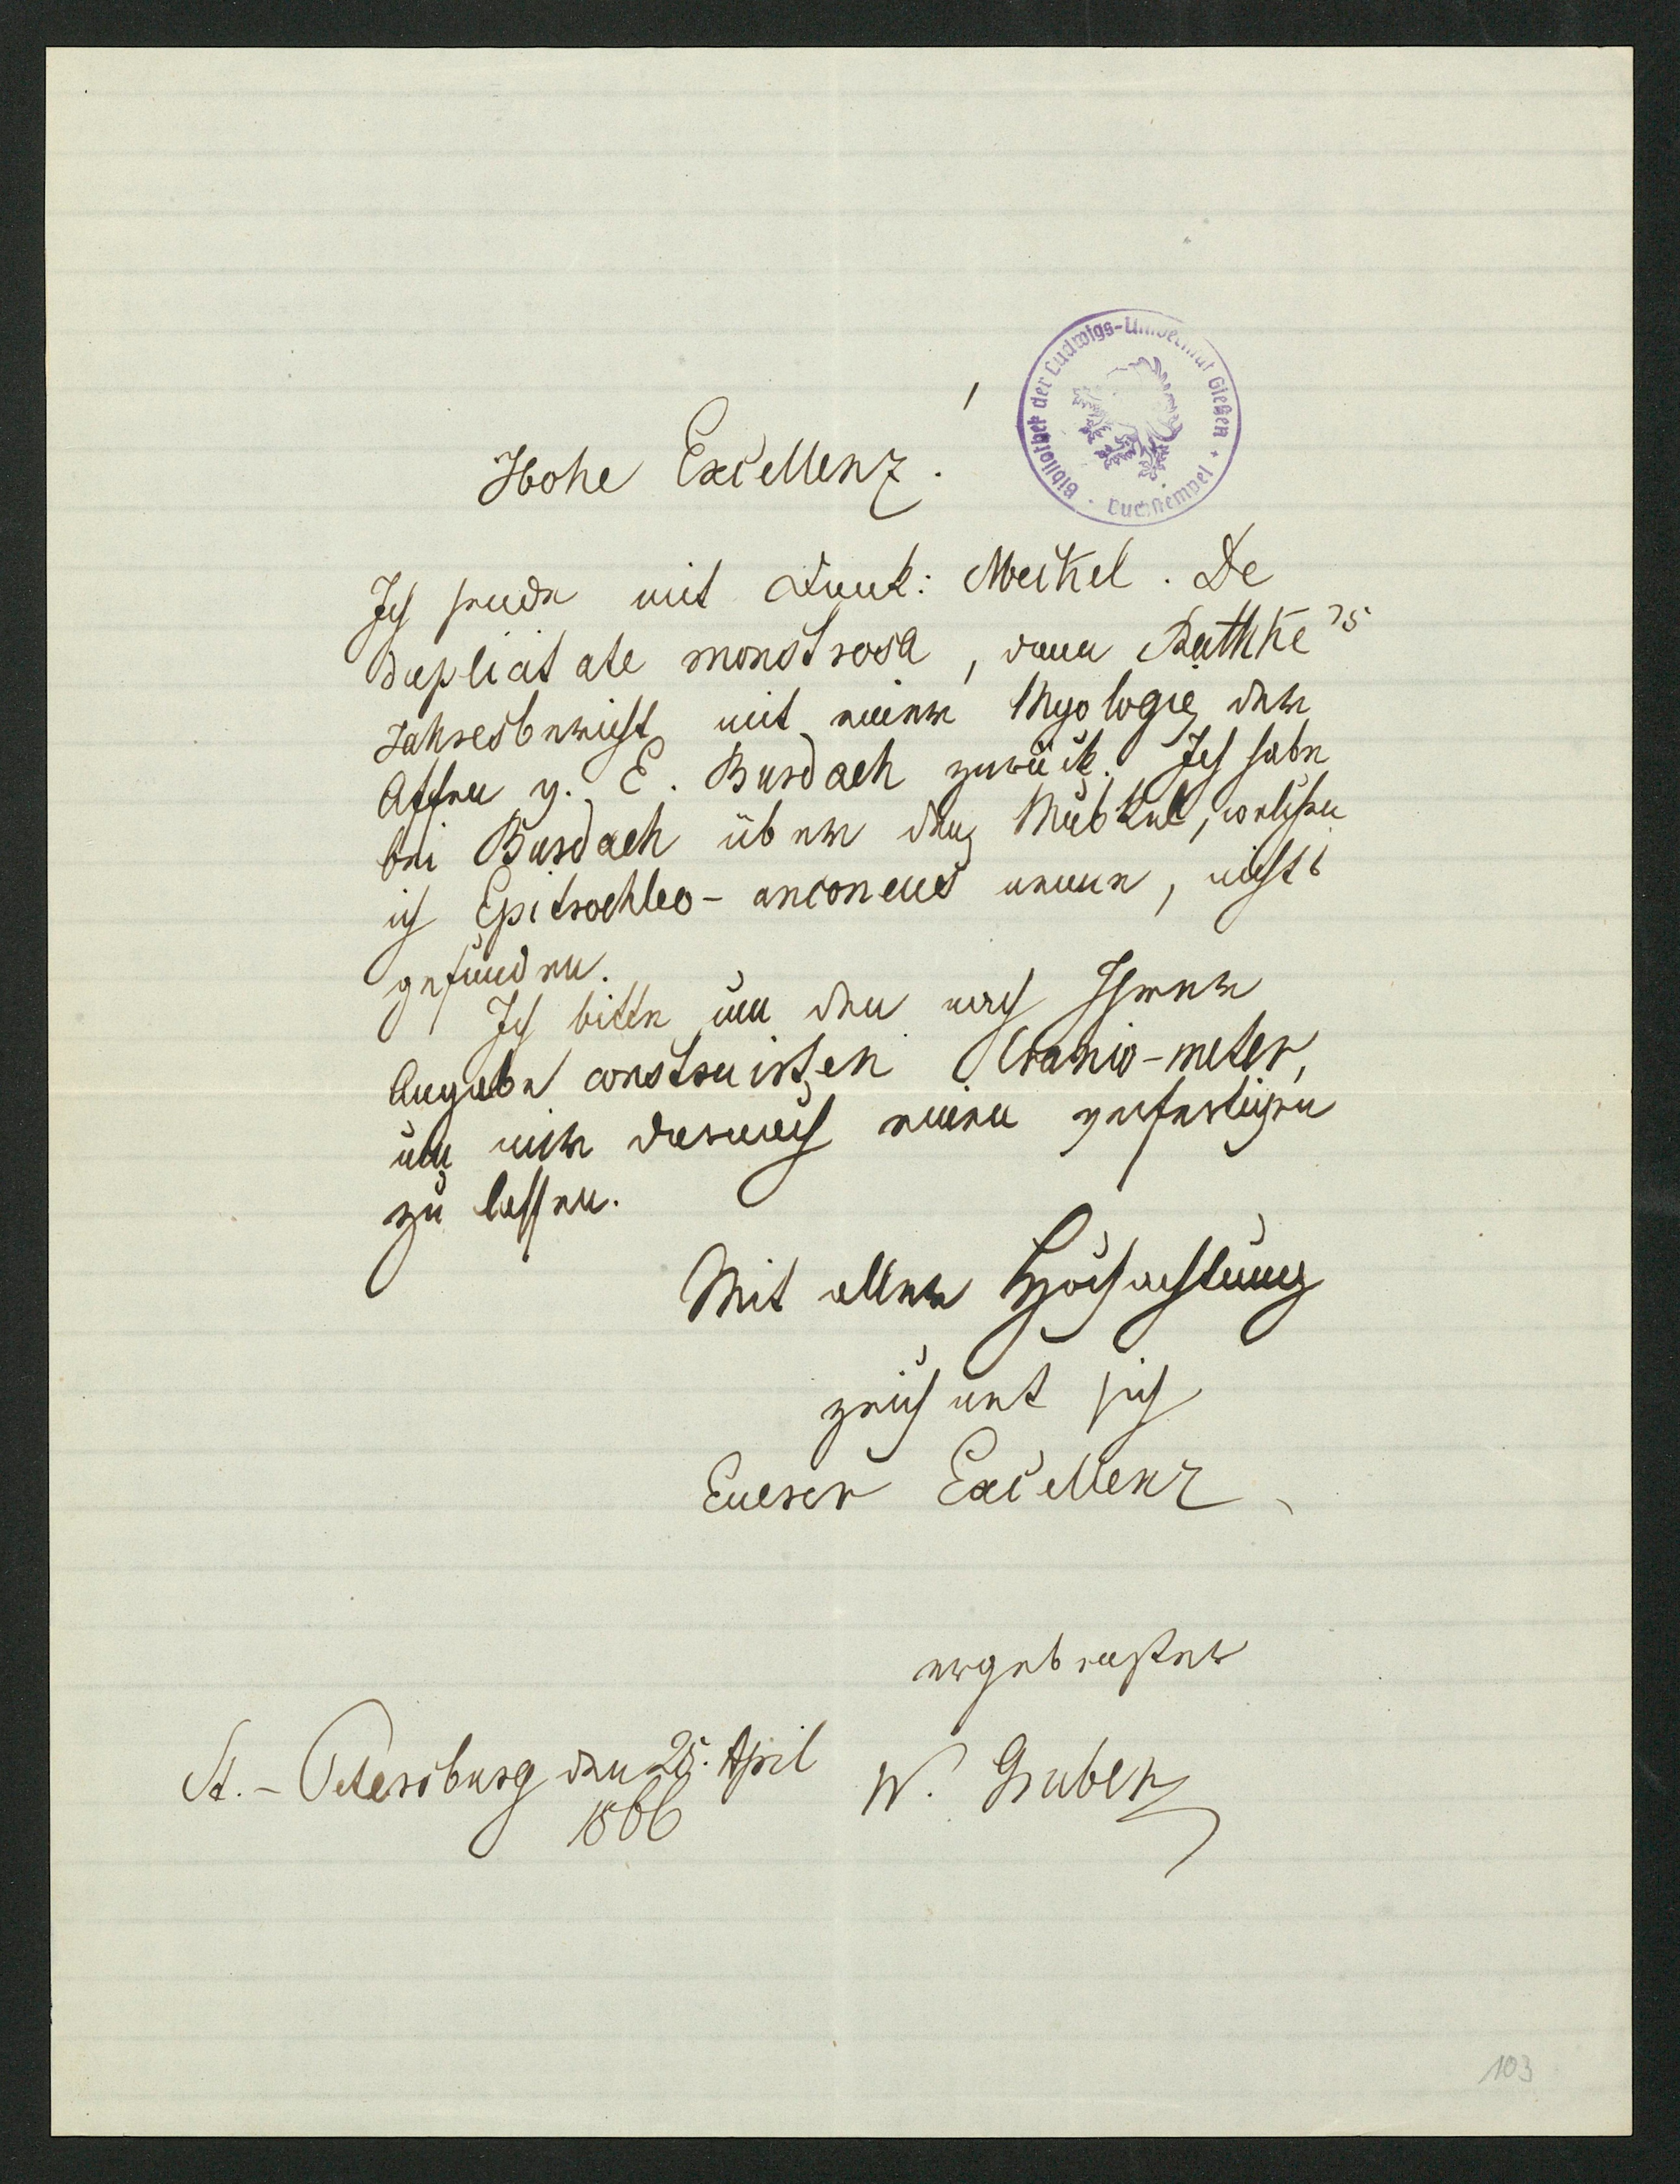 Hohe Excellenz!
Bibliothek der Ludwigs-Universität Gießen * Buchstempel *
Ich sende mit Dank: Meckel. De
duplicitate monstrosa, dann Rathke's
Jahresbericht mit einer Myologie der
Affen v. E. Burdach zurück. Ich habe
bei Burdach über den Muskel, welchen
ich Epitrochleo-anconeus nenne, nichts
gefunden.
Ich bitte um den nach Ihrer
Angabe construirten Cranio-meter,
um mir darnach einen verfertigen
zu lassen.
Mit aller Hochachtung
zeichnet sich
Euerer Excellenz
ergebenster
St.-Petersburg den 25. April W. Gruber
1866
103